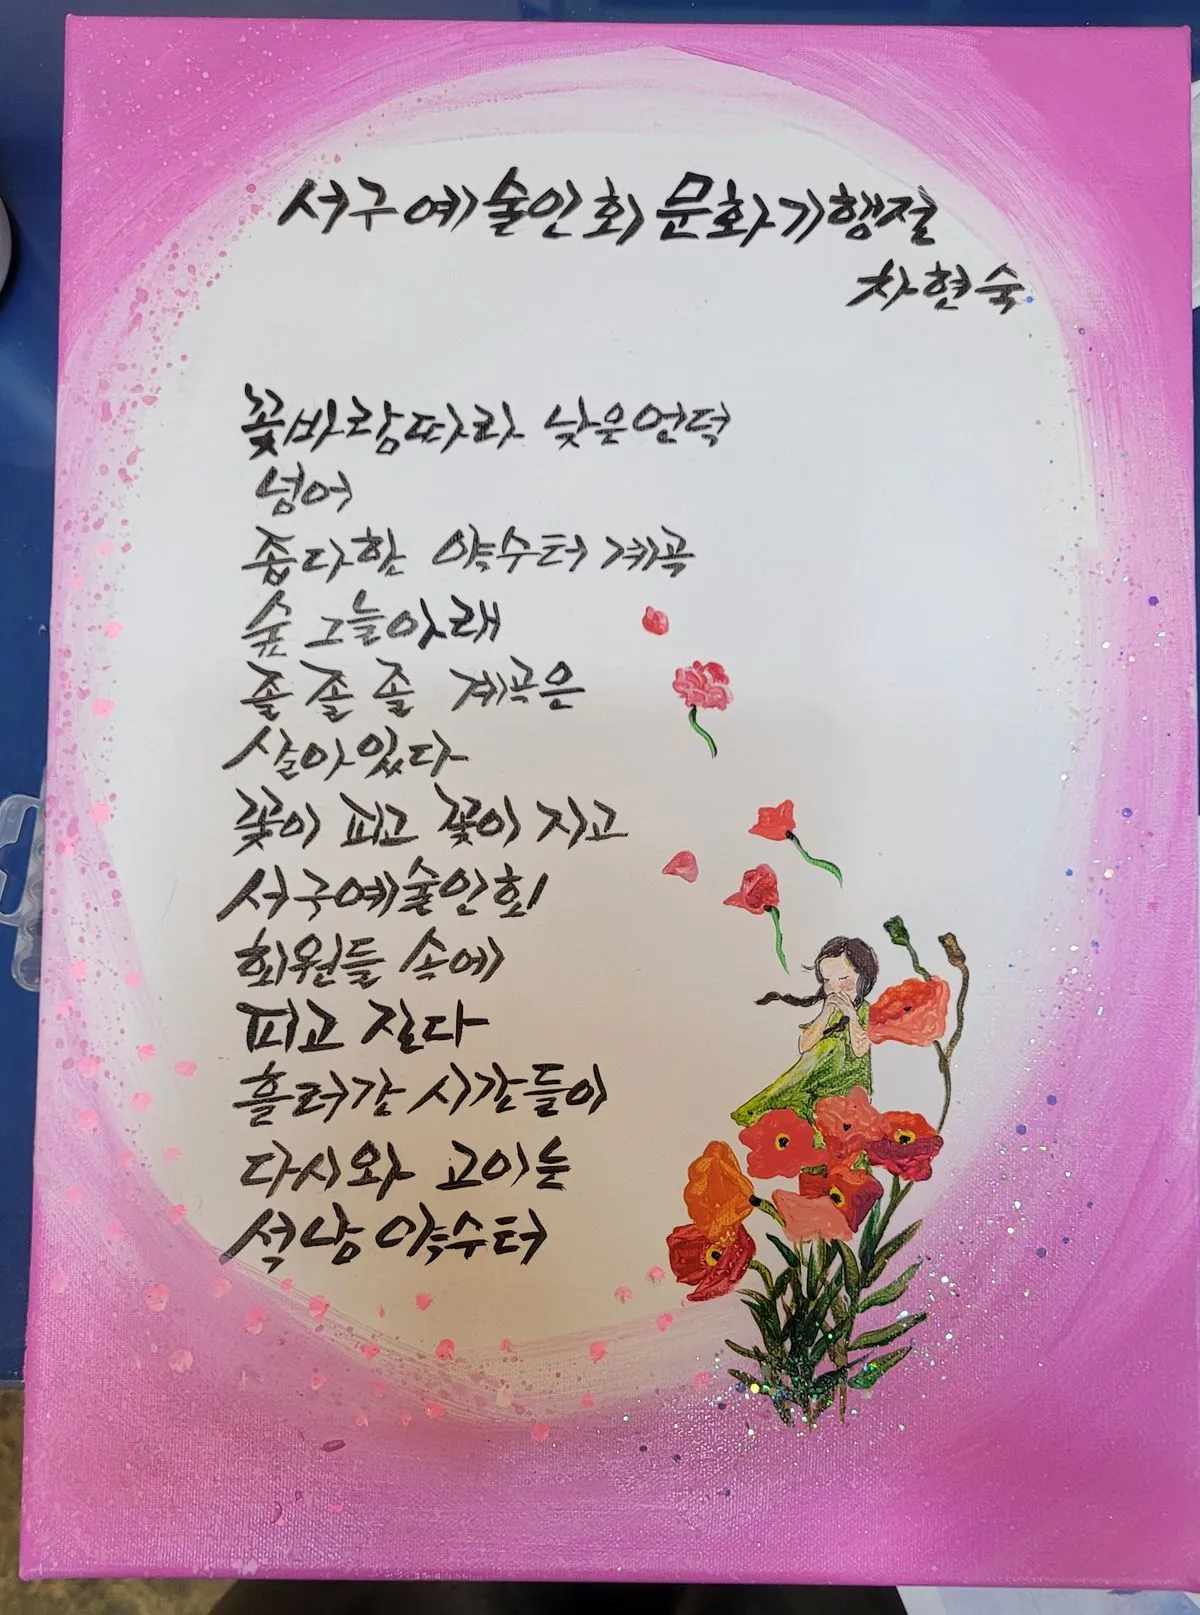 서구예술인회 문화기행절
차현숙
꽃바람따라 낮은언덕
넘어
좁다한 약수터 계곡
숲 그늘아래
졸 졸 졸 계곡은
살아있다
꽃이 피고 꽃이 지고
서구예술인회
회원들 속에
피고 진다
흘러간 시간들이
다시와 고이는
석남 약수터